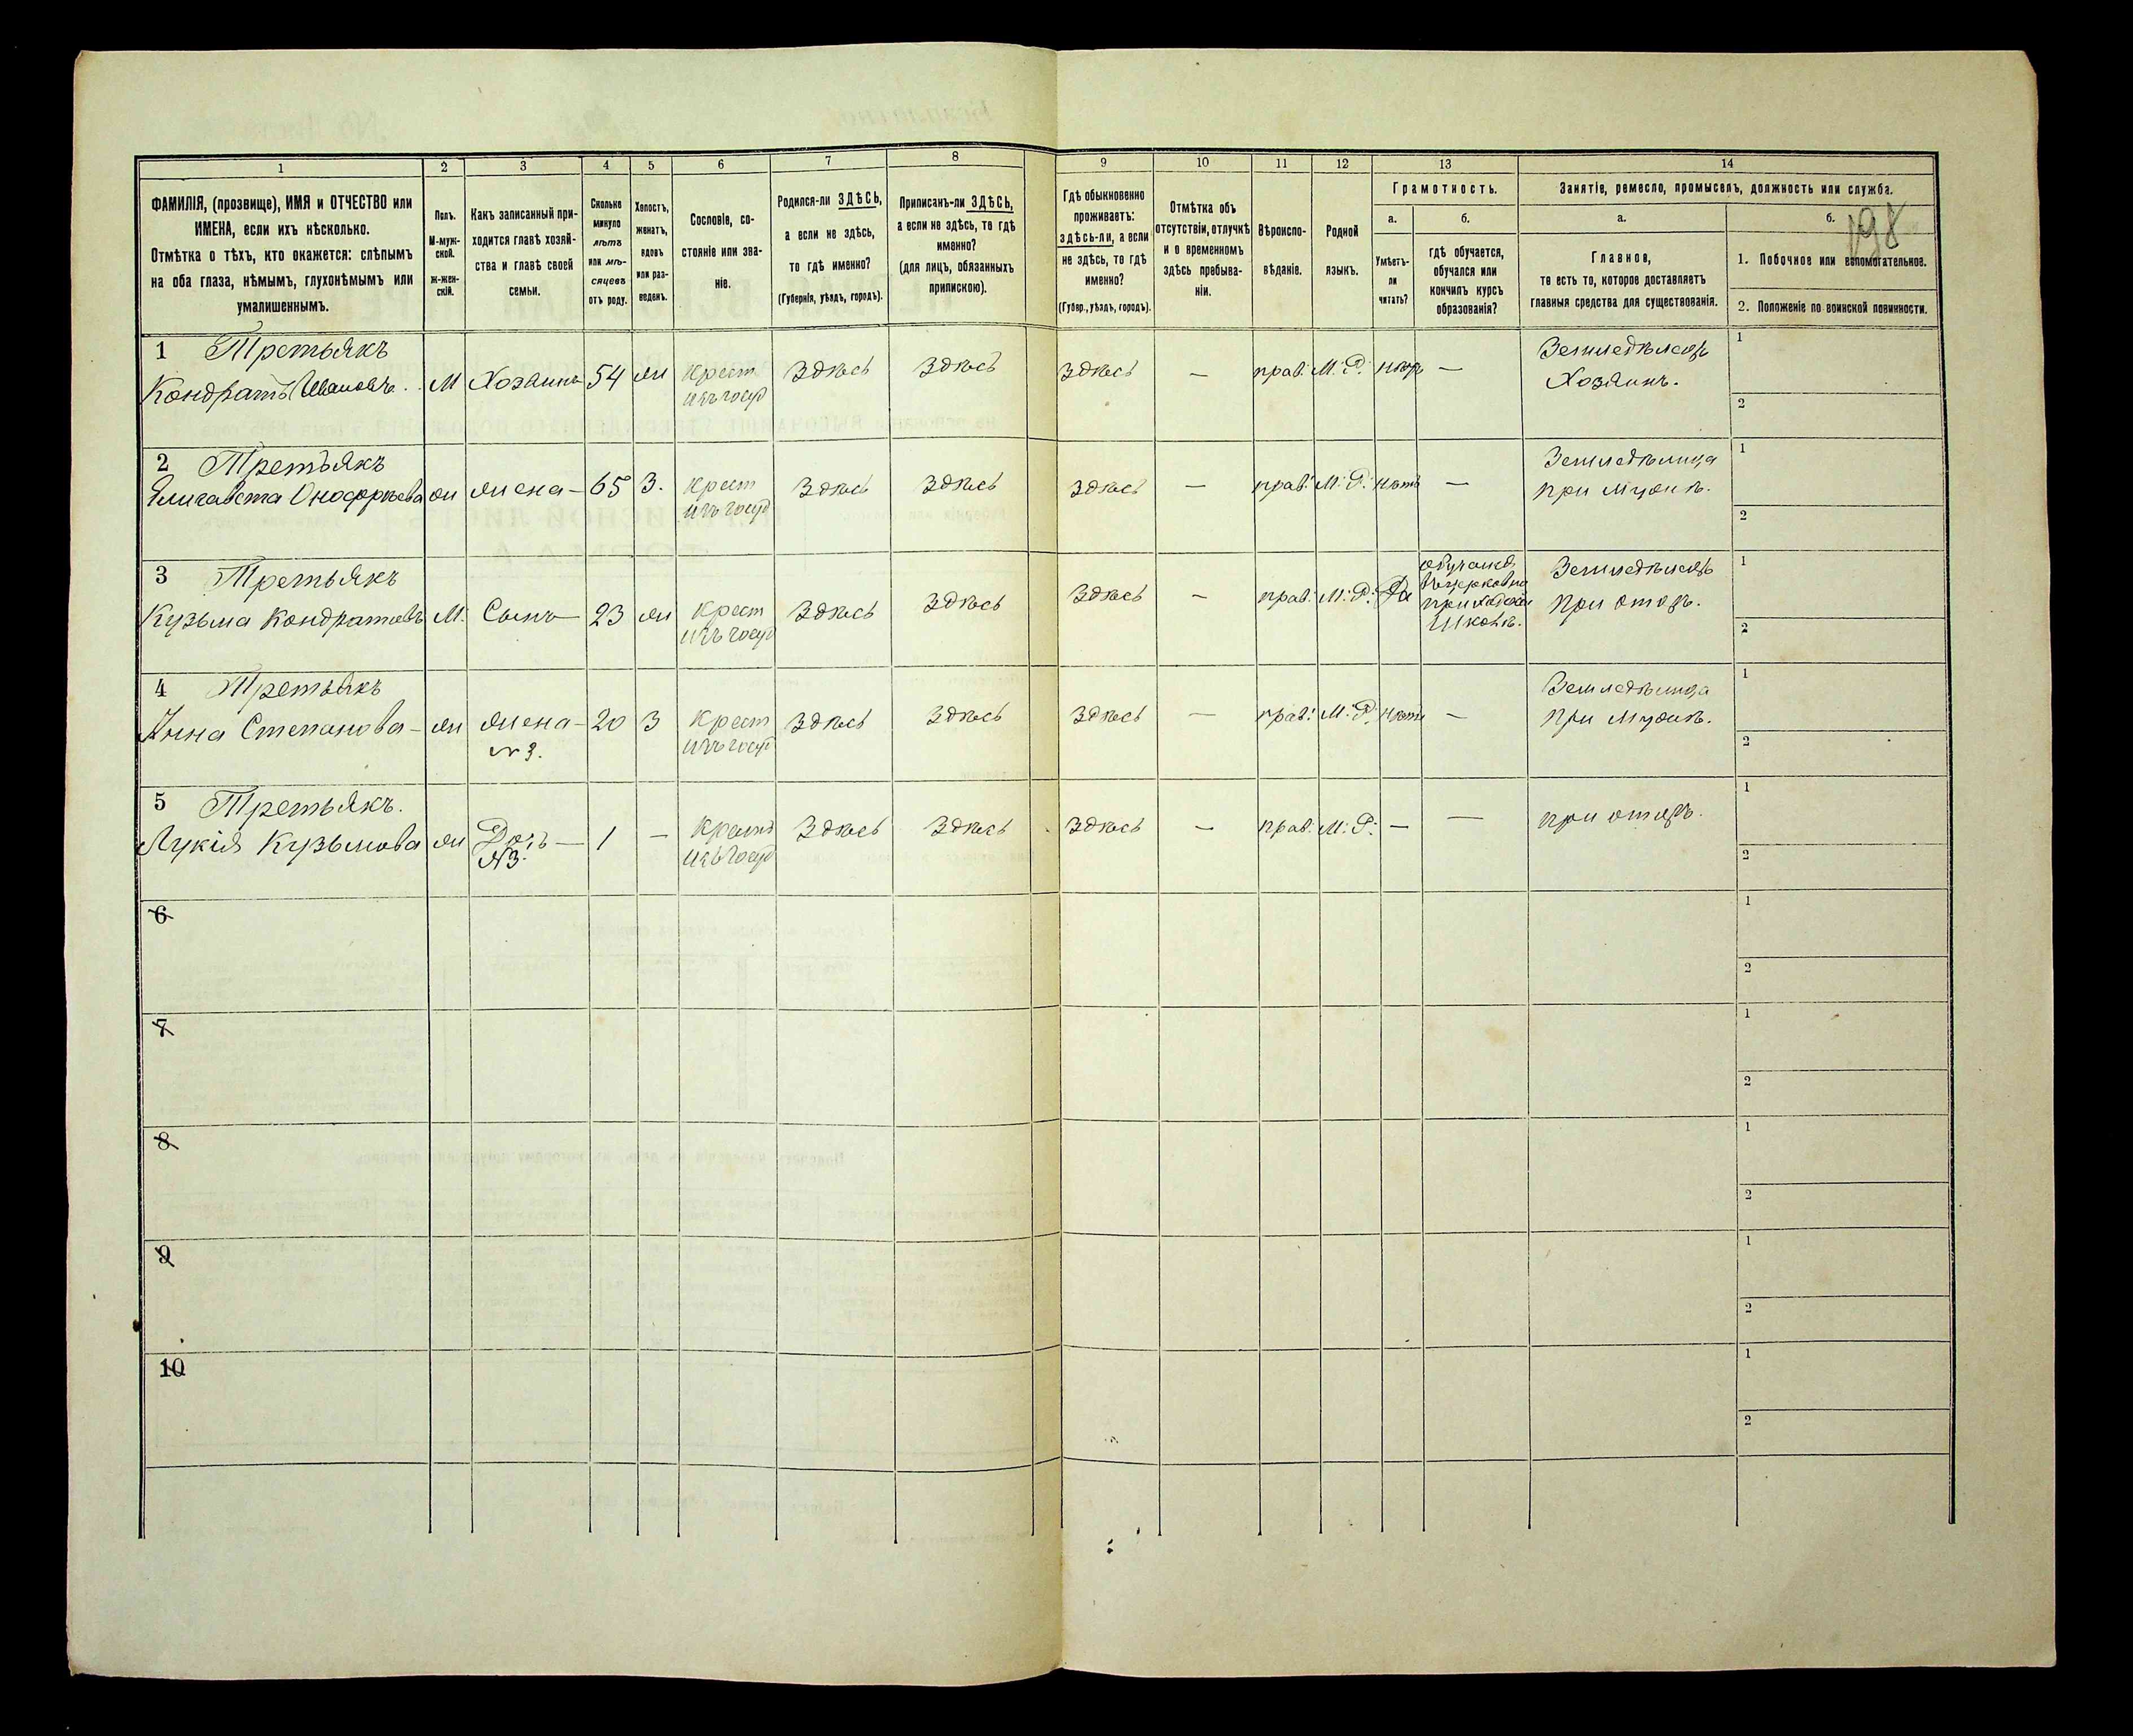 198
1 2 3 4 5 6 7 8 9 10 11 12 13 14
ФАМИЛІЯ, (прозвище), ИМЯ и ОТЧЕСТВО или
ИМЕНА, если ихъ нѣсколько.
Отмѣтка о тѣхъ, кто окажется: слѣпымъ
на оба глаза, нѣмымъ, глухонѣмымъ или
умалишеннымъ.
Полъ.
М-муж-
ской.
ж-жен-
скій.
Какъ записанный при-
ходится главѣ хозяй-
ства и главѣ своей
семьи.
Сколько
минуло
лѣтъ
или мѣ-
сяцевъ
отъ роду.
Холостъ,
женатъ,
вдовъ
или раз-
веденъ.
Сословіе, со-
стояніе или зва-
ніе.
Родился-ли ЗДѢСЬ,
а если не здѣсь,
то гдѣ именно?
(Губернія, уѣздъ, городъ).
Приписанъ-ли ЗДѢСЬ,
а если не здѣсь, то гдѣ
именно?
(для лицъ, обязанныхъ
припискою).
Гдѣ обыкновенно
проживаетъ:
здѣсь-ли, а если
не здѣсь, то гдѣ
именно?
(Губер., уѣздъ, городъ).
Отмѣтка объ
отсутствіи, отлучкѣ
и о временномъ
здѣсь пребыва-
ніи.
Вѣроиспо-
вѣданіе.
Родной
языкъ.
Грамотность.
а.
Умѣетъ-
ли
читать?
б.
гдѣ обучается,
обучался или
кончилъ курсъ
образованія?
Занятіе, ремесло, промыселъ, должность или служба.
а.
Главное,
то есть то, которое доставляетъ
главныя средства для существованія.
б.
1. Побочное или вспомогательное.
2. Положеніе по воинской повинности.
1 Третьякъ
Кондратъ Ивановъ М Хозяинъ 54 ж Крест Здѣсь Здѣсь Здѣсь — прав: М: Р: нѣтъ — Земледѣлецъ
изъ госуд Хозяинъ.
1
2
2 Третьякъ
Елизавета Онофріева ж жена — 65 З. Крест Здѣсь Здѣсь Здѣсь — прав: М: Р: нѣтъ — Земледѣлица
изъ госуд при мужѣ.
1
2
3 Третьякъ
Кузьма Кондратовъ М. Сынъ — 23 ж Крест Здѣсь Здѣсь Здѣсь — прав: М: Р: Да
изъ госуд
обучался
въ церковно
приходской
школѣ.
Земледѣлецъ
при отцѣ.
1
2
4 Третьякъ
Анна Степанова — ж жена — 20 З Крест Здѣсь Здѣсь Здѣсь — прав: М: Р: нѣтъ — Земледѣлица
№ 3. изъ госуд при мужѣ.
1
2
5 Третьякъ.
Лукія Кузьмова ж Дочь — 1 — Крест Здѣсь Здѣсь Здѣсь — прав: М: Р: — — при отцѣ.
№ 3. изъ госуд
1
2
6
1
2
7
1
2
8
1
2
9
1
2
10
1
2